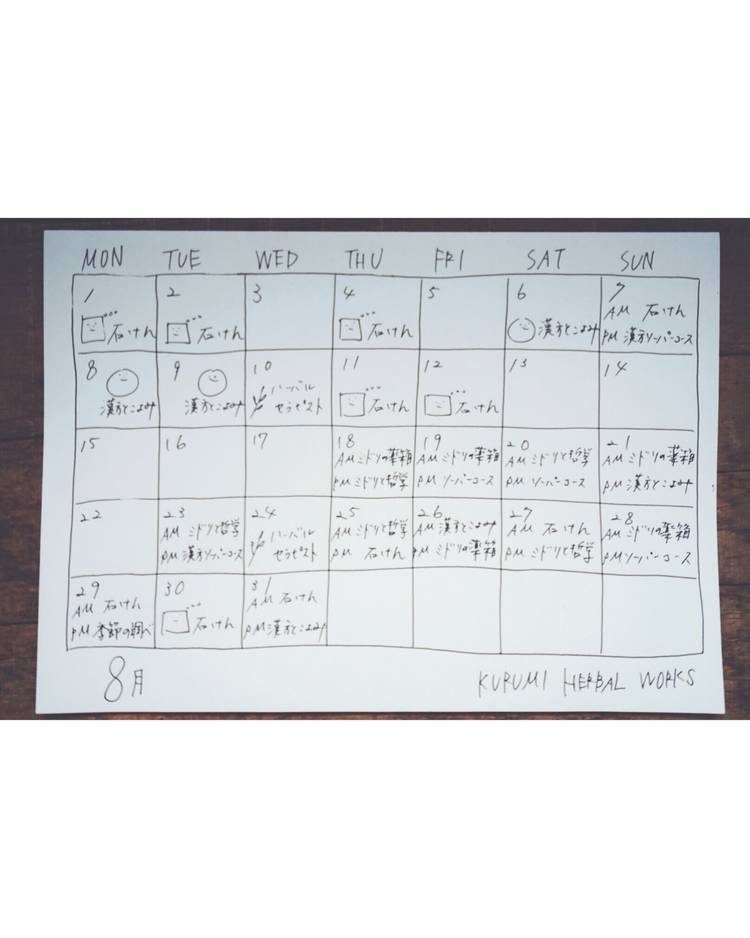 MON TUE WED THU FRI SAT SUN
1
石けん
2
石けん
3
4
石けん
5
6
漢方とこよみ
7
AM 石けん
PM 漢方ソーパーコース
8
漢方とこよみ
9
漢方とこよみ
10
ハーバル
セラピスト
11
石けん
12
石けん
13
14
15
16
17
18
AM ミドリの薬箱
PM ミドリと哲学
19
AM ミドリの薬箱
PM ソーパーコース
20
AM ミドリと哲学
PM ソーパーコース
21
AM ミドリの薬箱
PM 漢方とこよみ
22
23
AM ミドリと哲学
PM 漢方ソーパーコース
24
ハーバル
セラピスト
25
AM ミドリと哲学
PM 石けん
26
AM 漢方とこよみ
PM ミドリの薬箱
27
AM 石けん
PM ミドリと哲学
28
AM ミドリの薬箱
PM ソーパーコース
29
AM 石けん
PM 季節の調べ
30
石けん
31
AM 石けん
PM 漢方とこよみ
8月
KURUMI HERBAL WORKS